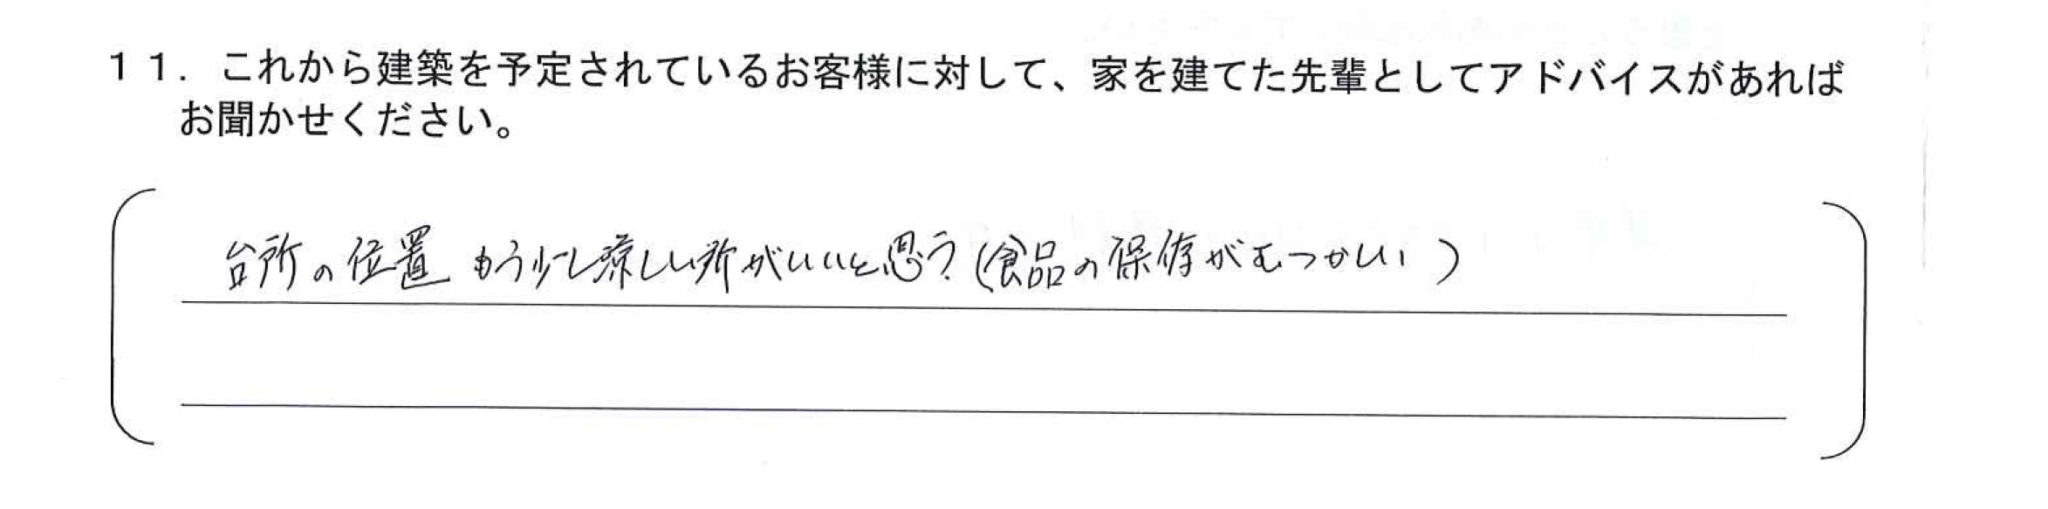 １１．これから建築を予定されているお客様に対して、家を建てた先輩としてアドバイスがあれば
お聞かせください。
台所の位置 もう少し涼しい所がいいと思う（食品の保存がむつかしい）